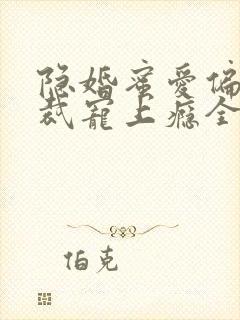 隐婚蜜爱偏
裁宠上瘾全
伯克